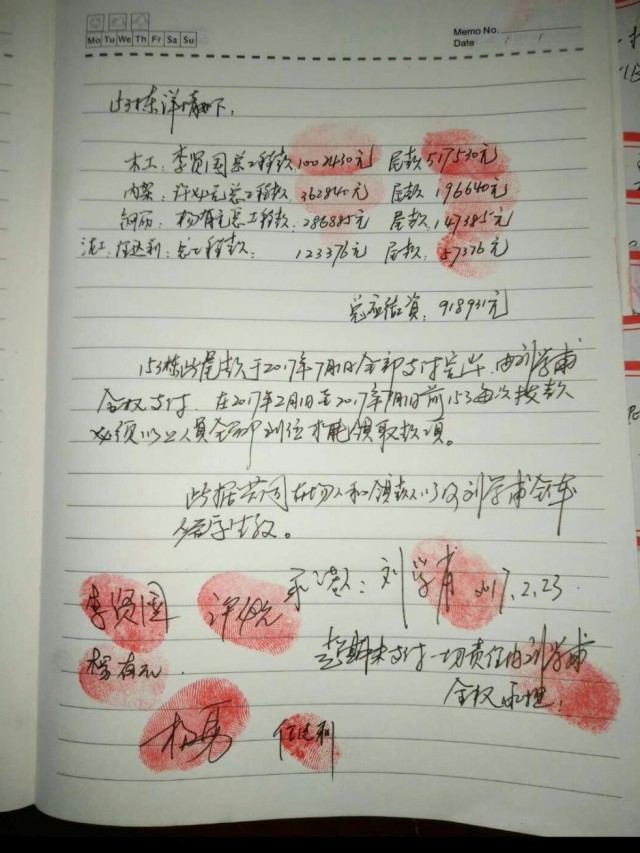 Mo Tu We Th Fr Sa Su
Memo No.
Date / /
153栋详情如下。
木工:李贤国总工程款1002430元 尾款517530元
内架:许如元总工程款362840元 尾款196640元
钢筋:杨有元总工程款286885元 尾款147385元
泥工:任达利:总工程款:123376元 尾款:57376元
918931元
153栋此尾款于2017年7月1日全部支付完毕,由刘学甫
全权支付。在2017年2月1日至2017年7月1日前153每次拨款
必须以上人员全部到位才能领取款项。
此据共同在场人和领款人以及刘学甫
签字生效。
承认人:刘学甫 2017.2.23.
李贤国
逾期未支付一切责任由刘学甫
杨有元
全权承担。
杨勇 任达利